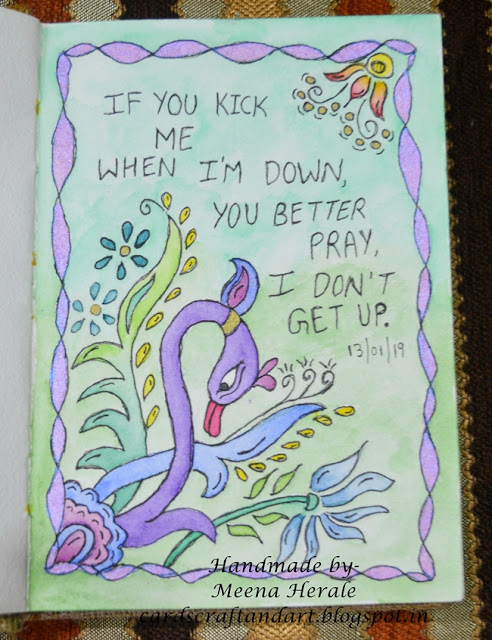 IF YOU KICK
ME
WHEN I'M DOWN,
YOU BETTER
PRAY,
I DON'T
GET UP.
13/01/19
Handmade by-
Meena Herale
cardscraftandart.blogspot.in